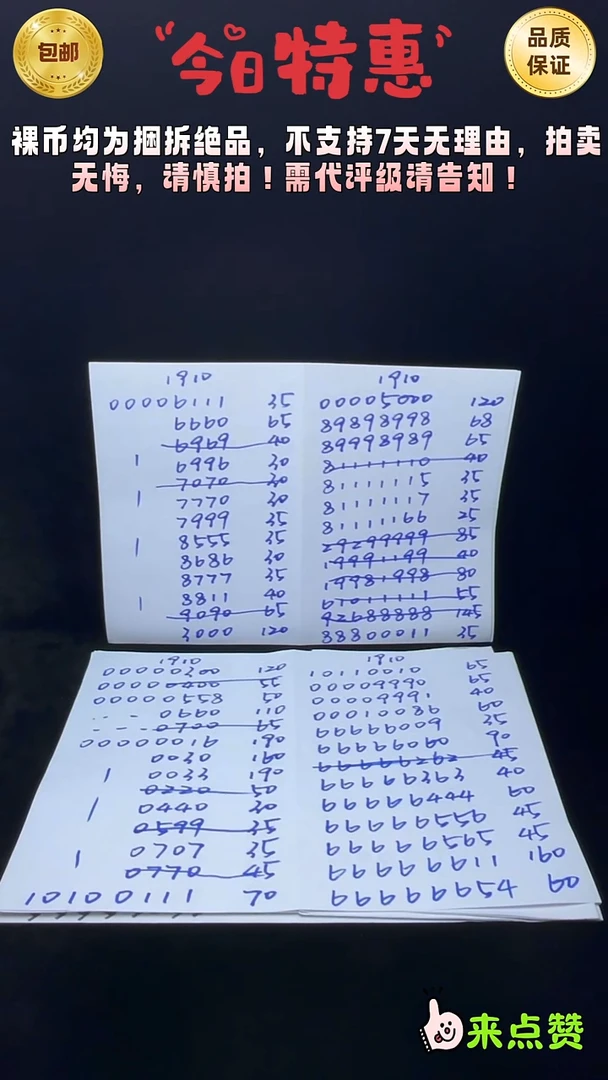 包邮
今日特惠
品质
保证
裸币均为捆拆绝品，不支持7天无理由，拍卖
无悔，请慎拍！需代评级请告知！
1910
00006111 35
6660 65
6969 40
1 6996 30
7070 30
1 7770 30
7999 35
1 8555 35
8686 30
8777 35
1 8811 40
9090 65
3000 120
1910
00005000 120
89898998 68
89998989 65
81111110 40
8111115 35
8111117 35
8111166 25
29299999 85
19991199 40
19981998 80
61011111 55
92688888 145
88800011 35
1910
00000300 120
00000400 55
00000558 50
0660 110
0700 65
00000016 190
0030 160
1 0033 190
0220 50
1 0440 30
0599 35
1 0707 35
0770 45
10100111 70
1910
10110010 65
00009990 65
00009991 40
00010086 60
66666009 35
66666060 90
66666262 45
66666363 40
66666444 60
66666556 45
66666565 45
66666611 160
66666654 60
来点赞